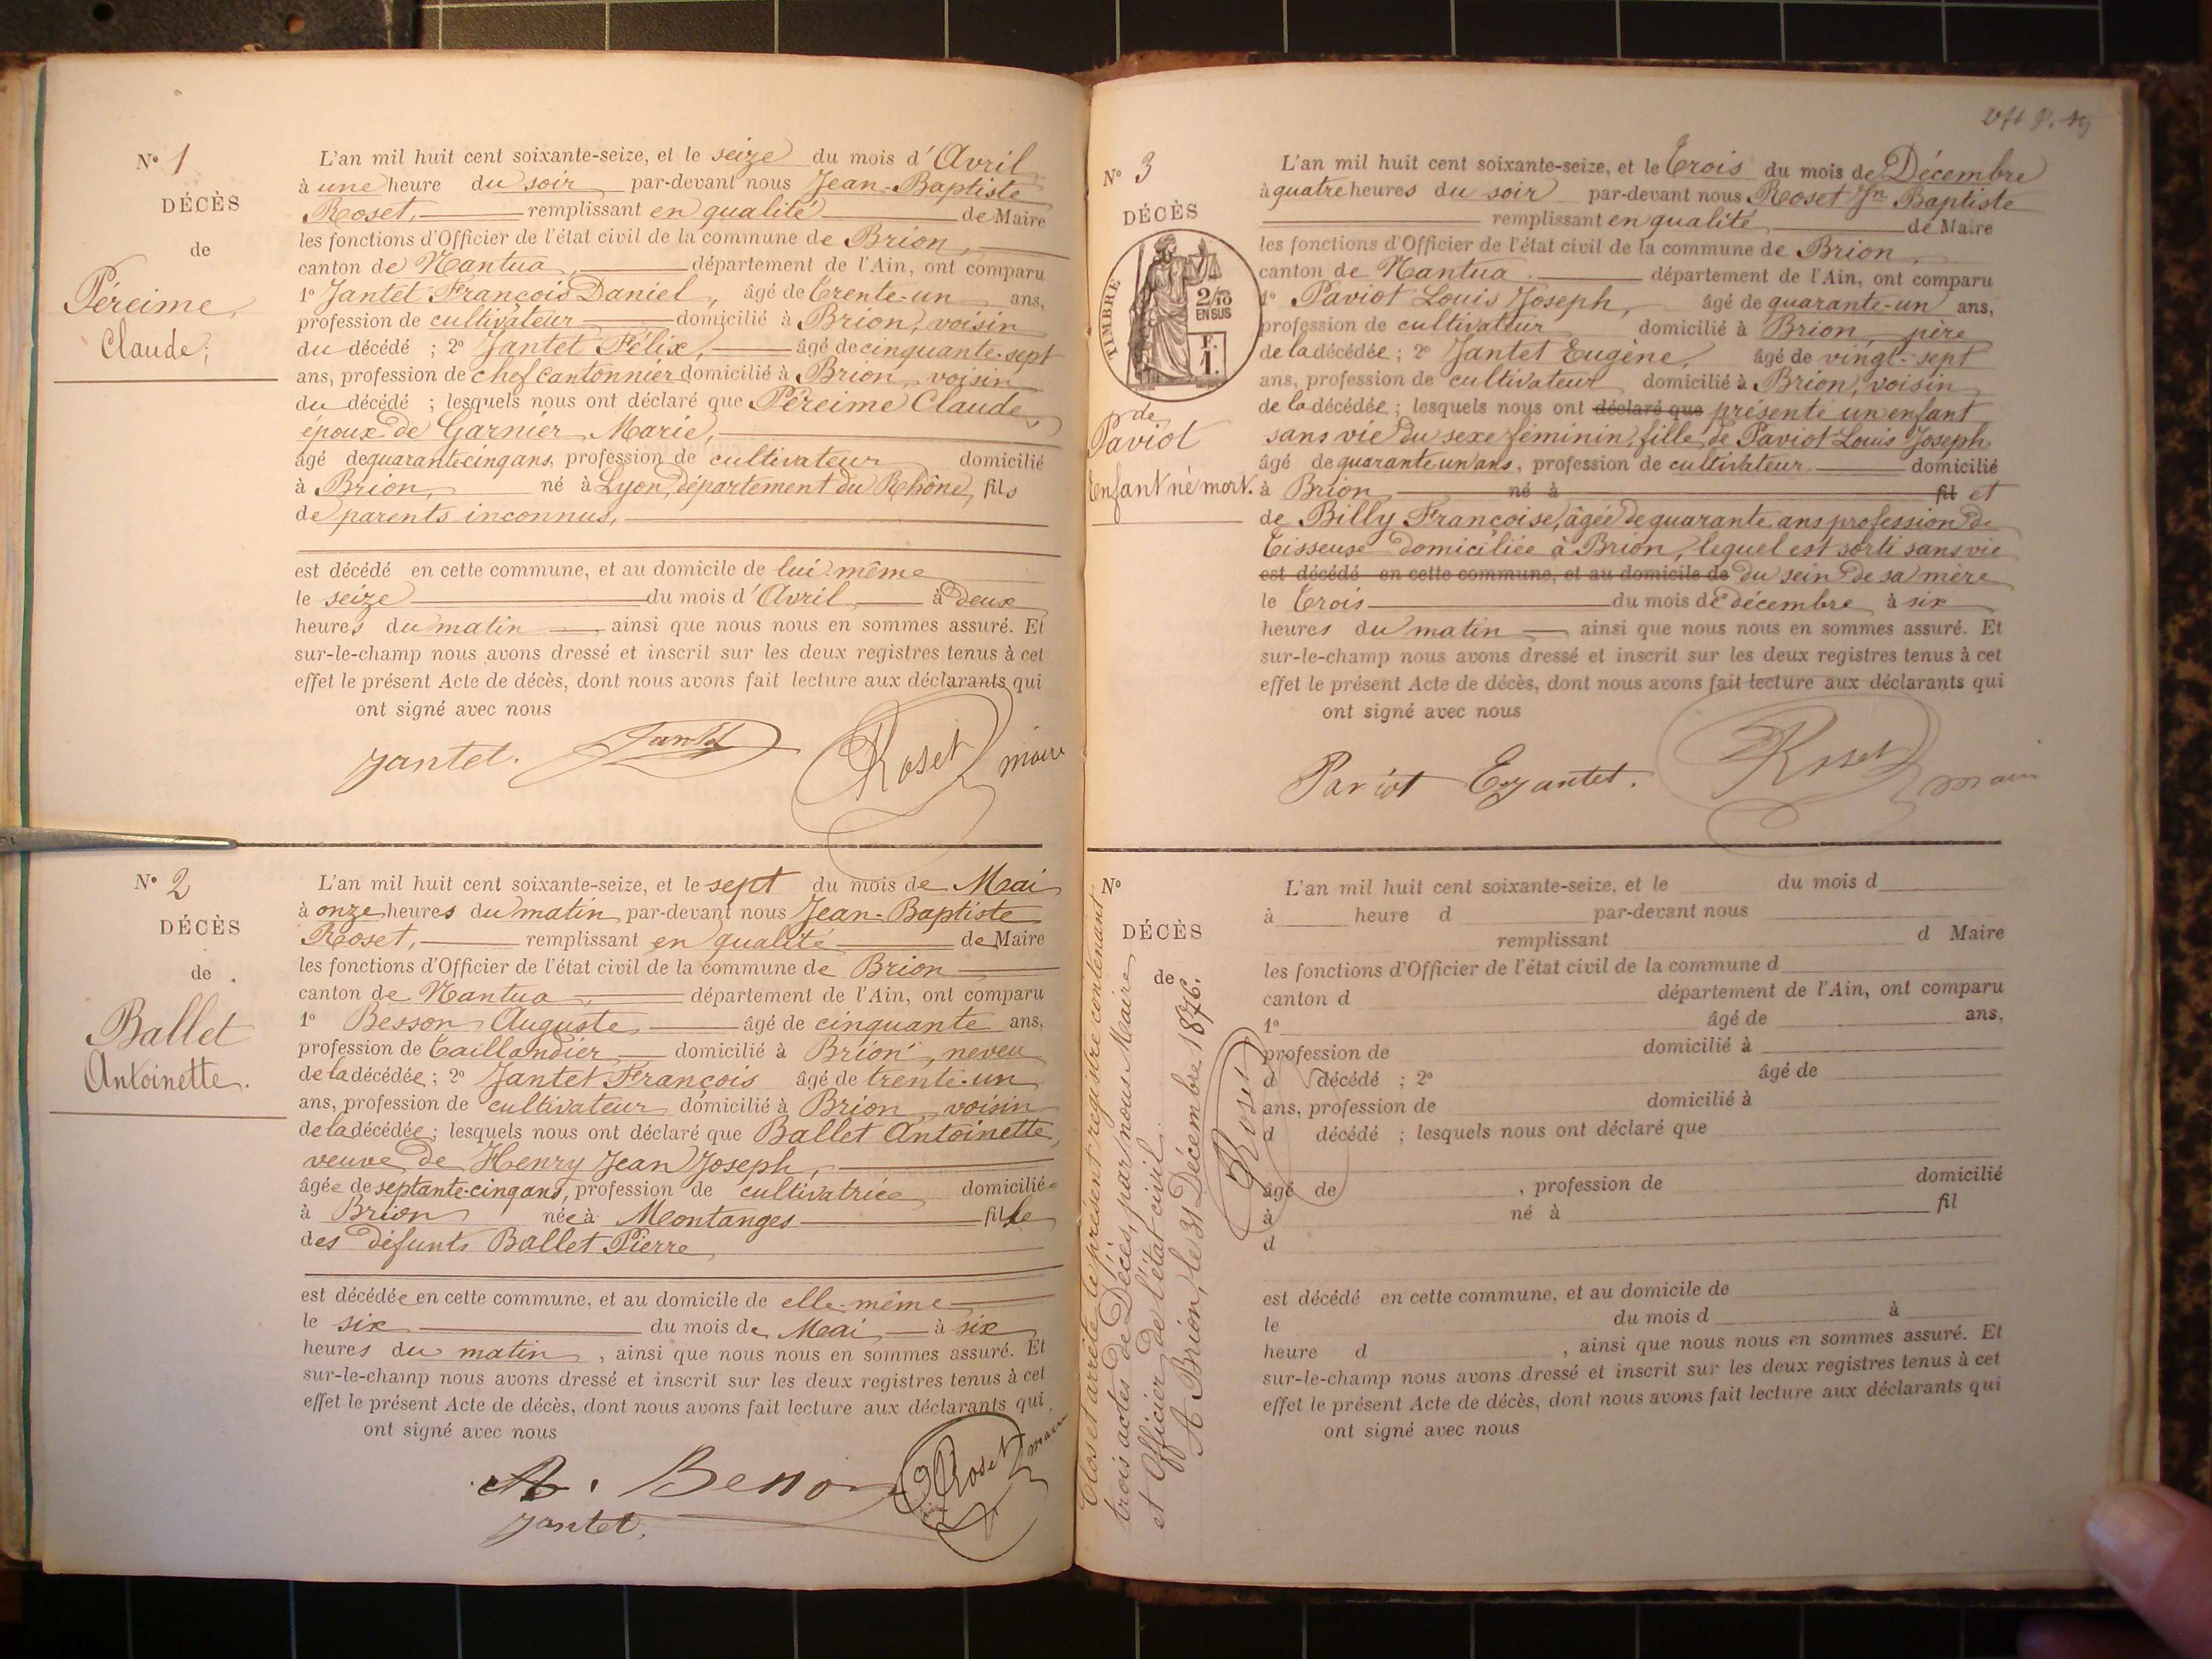 N° 1
DÉCÈS
de
Péreime,
Claude;
L'an mil huit cent soixante-seize, et le seize du mois d'Avril
à une heure du soir par-devant nous Jean-Baptiste
Roset, remplissant en qualité de Maire
les fonctions d'Officier de l'état civil de la commune de Brion,
canton de Nantua, département de l'Ain, ont comparu
1° Jantet François Daniel, âgé de trente-un ans,
profession de cultivateur domicilié à Brion, voisin
du décédé ; 2° Jantet Félix, âgé de cinquante-sept
ans, profession de chef cantonnier domicilié à Brion, voisin
du décédé ; lesquels nous ont déclaré que Péreime Claude,
époux de Garnier Marie,
âgé de quarante cinq ans, profession de cultivateur domicilié
à Brion, né à Lyon, département du Rhône, fils
de parents inconnus,
est décédé en cette commune, et au domicile de lui-même
le seize du mois d'Avril à deux
heures du matin ainsi que nous nous en sommes assuré. Et
sur-le-champ nous avons dressé et inscrit sur les deux registres tenus à cet
effet le présent Acte de décès, dont nous avons fait lecture aux déclarants qui
ont signé avec nous
Jantet. Jantet Roset maire
N° 2
DÉCÈS
de
Ballet
Antoinette.
L'an mil huit cent soixante-seize, et le sept du mois de Mai
à onze heures du matin par-devant nous Jean-Baptiste
Roset, remplissant en qualité de Maire
les fonctions d'Officier de l'état civil de la commune de Brion
canton de Nantua, département de l'Ain, ont comparu
1° Besson Auguste âgé de cinquante ans,
profession de taillandier domicilié à Brion, neveu
de la décédée ; 2° Jantet François âgé de trente-un
ans, profession de cultivateur domicilié à Brion, voisin
de la décédée ; lesquels nous ont déclaré que Ballet Antoinette,
veuve de Henry Jean Joseph,
âgée de septante-cinq ans, profession de cultivatrice domiciliée
à Brion née à Montanges fille
des défunts Ballet Pierre
est décédée en cette commune, et au domicile de elle-même
le six du mois de Mai à six
heures du matin, ainsi que nous nous en sommes assuré. Et
sur-le-champ nous avons dressé et inscrit sur les deux registres tenus à cet
effet le présent Acte de décès, dont nous avons fait lecture aux déclarants qui
ont signé avec nous
A. Besson Roset maire
Jantet.
N° 3
DÉCÈS
TIMBRE
2/10
EN SUS
F.
1.
de
Paviot
Enfant né mort.
L'an mil huit cent soixante-seize, et le trois du mois de Décembre
à quatre heures du soir par-devant nous Roset Jn Baptiste
remplissant en qualité de Maire
les fonctions d'Officier de l'état civil de la commune de Brion,
canton de Nantua. département de l'Ain, ont comparu
1° Paviot Louis Joseph, âgé de quarante-un ans,
profession de cultivateur domicilié à Brion père
de la décédée ; 2° Jantet Eugène, âgé de vingt-sept
ans, profession de cultivateur domicilié à Brion, voisin
de la décédée ; lesquels nous ont déclaré que présenté un enfant
sans vie du sexe féminin, fille de Paviot Louis Joseph
âgé de quarante un ans, profession de cultivateur domicilié
à Brion né à fil et
de Billy Françoise, âgée de quarante ans profession de
tisseuse domiciliée à Brion, lequel est sorti sans vie
est décédé en cette commune, et au domicile de du sein de sa mère
le trois du mois de décembre à six
heures du matin ainsi que nous nous en sommes assuré. Et
sur-le-champ nous avons dressé et inscrit sur les deux registres tenus à cet
effet le présent Acte de décès, dont nous avons fait lecture aux déclarants qui
ont signé avec nous
Paviot E Jantet. Roset maire
N°
DÉCÈS
de
Clos et arrêté le présent registre contenant
trois actes de Décès, par nous Maire
et Officier de l'état civil.
A Brion, le 31 Décembre 1876.
Roset
L'an mil huit cent soixante-seize, et le du mois d
à heure d par-devant nous
remplissant d Maire
les fonctions d'Officier de l'état civil de la commune d
canton d département de l'Ain, ont comparu
1° âgé de ans,
profession de domicilié à
d décédé ; 2° âgé de
ans, profession de domicilié à
d décédé ; lesquels nous ont déclaré que
âgé de , profession de domicilié
à né à fil
d
est décédé en cette commune, et au domicile de
le du mois d à
heure d , ainsi que nous nous en sommes assuré. Et
sur-le-champ nous avons dressé et inscrit sur les deux registres tenus à cet
effet le présent Acte de décès, dont nous avons fait lecture aux déclarants qui
ont signé avec nous